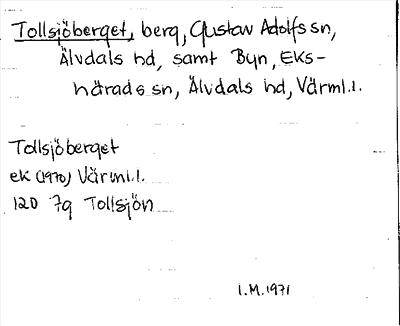 Tollsjöberget, berg, Gustav Adolfs sn,
Älvdals hd, samt Byn, Eks-
härads sn, Älvdals hd, Värml.l.
Tollsjöberget
ek (1970) Värml.l.
12D 7g Tollsjön
I.M. 1971